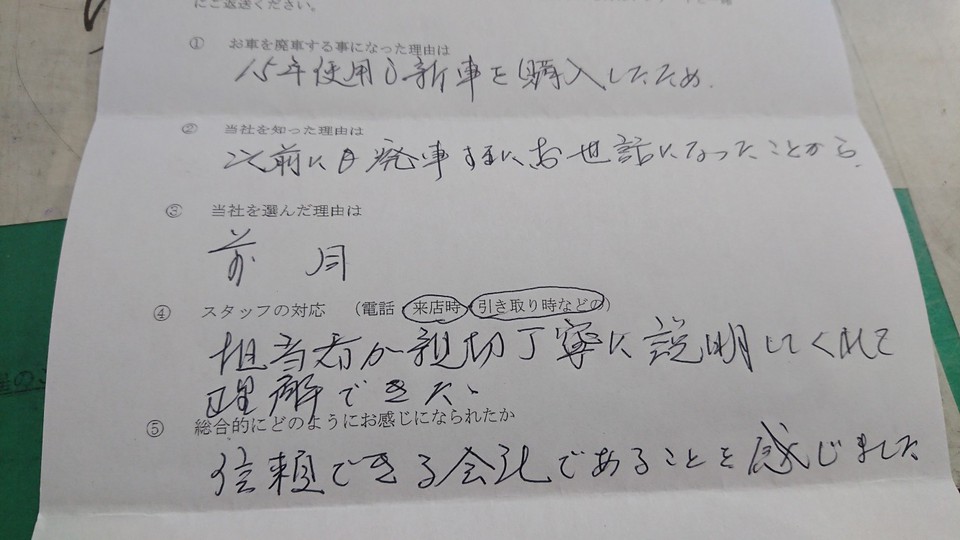 にご返送ください。
① お車を廃車する事になった理由は
15年使用し新車を購入したため.
② 当社を知った理由は
以前に日廃車するにお世話になったことから.
③ 当社を選んだ理由は
前 同
④ スタッフの対応 (電話 来店時 引き取り時などの)
担当者が親切丁寧に説明してくれて
理解できた、
⑤ 総合的にどのようにお感じになられたか
信頼できる会社であることを感じました